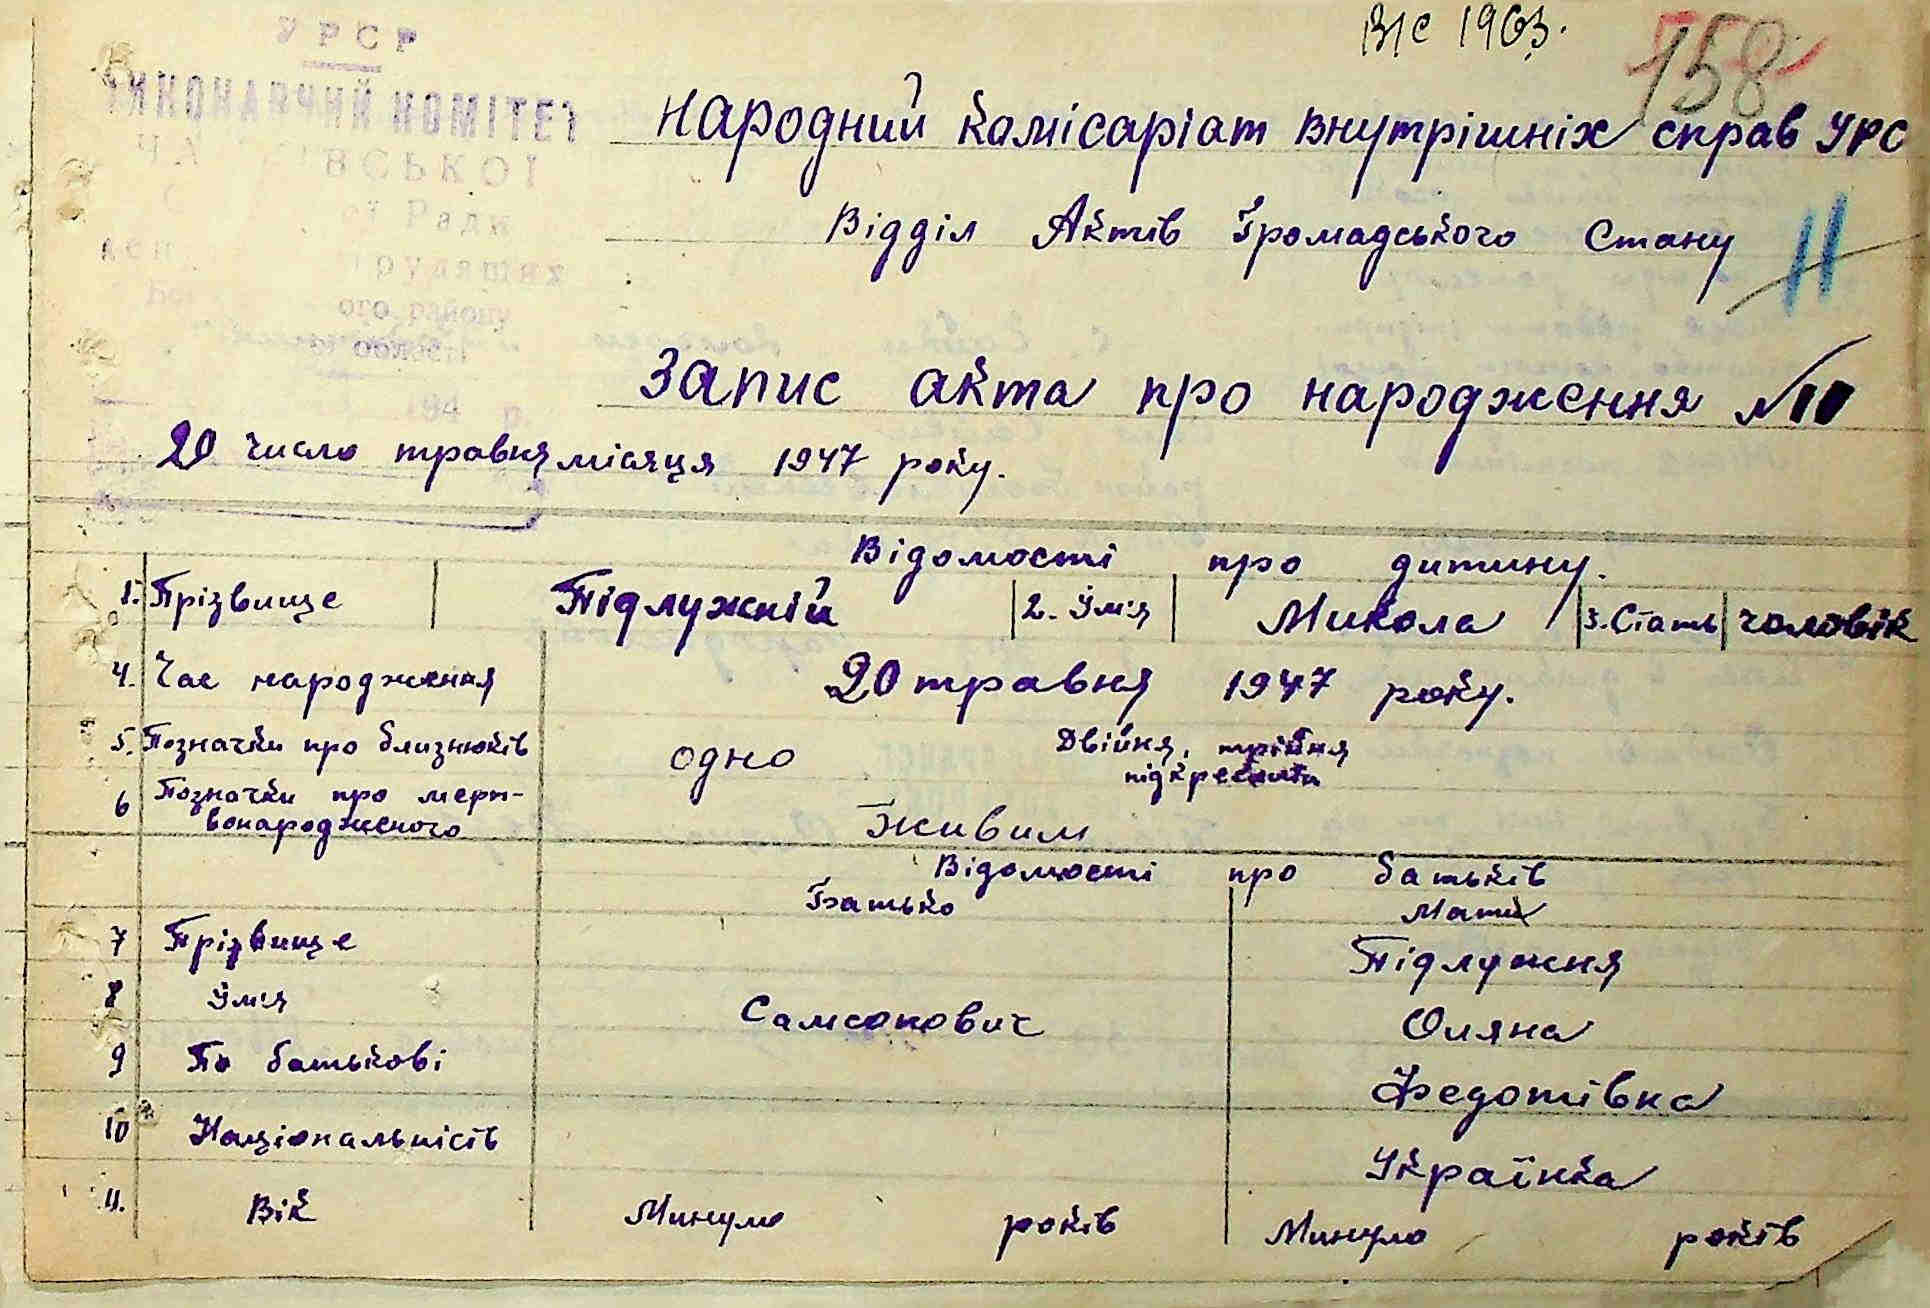 В/С 1963.
158
УРСР
ВИКОНАВЧИЙ КОМІТЕТ
Народний Комісаріат внутрішніх справ УРС
Ради
Відділ Актів Громадського Стану
11
ого району
області
Запис акта про народження №11
194 р.
20 число травня місяця 1947 року.
Відомості про дитину.
1. Прізвище Підлужній 2. Їм'я Микола 3. Стать чоловік
4. Час народження 20 травня 1947 року.
5. Позначки про близнюків одно Двійня, трійня
підкреслити
6 Позначки про мерт-
вонародженого Живим
Відомості про батьків
Батько Мати
7 Прізвище Підлужня
8 Їм'я Самсонович Оляна
9 По батькові Федотівна
10 Національність Українка
11. Вік Минуло років Минуло років